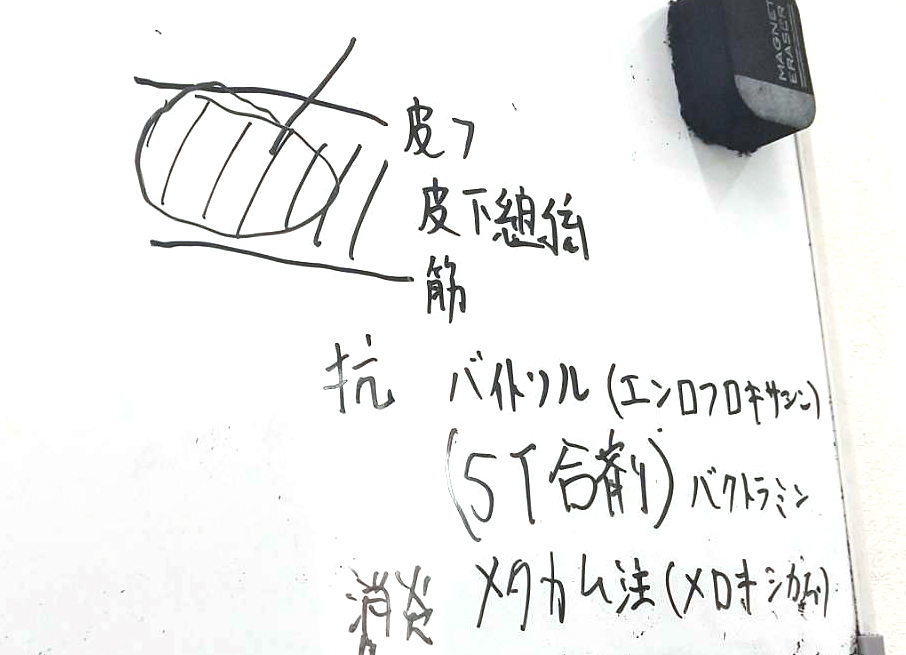 MAGNET
ERASER
皮フ
皮下組織
筋
抗 バイトリル (エンロフロキサシン)
(ST合剤) バクトラミン
消炎 メタカム注 (メロキシカム)